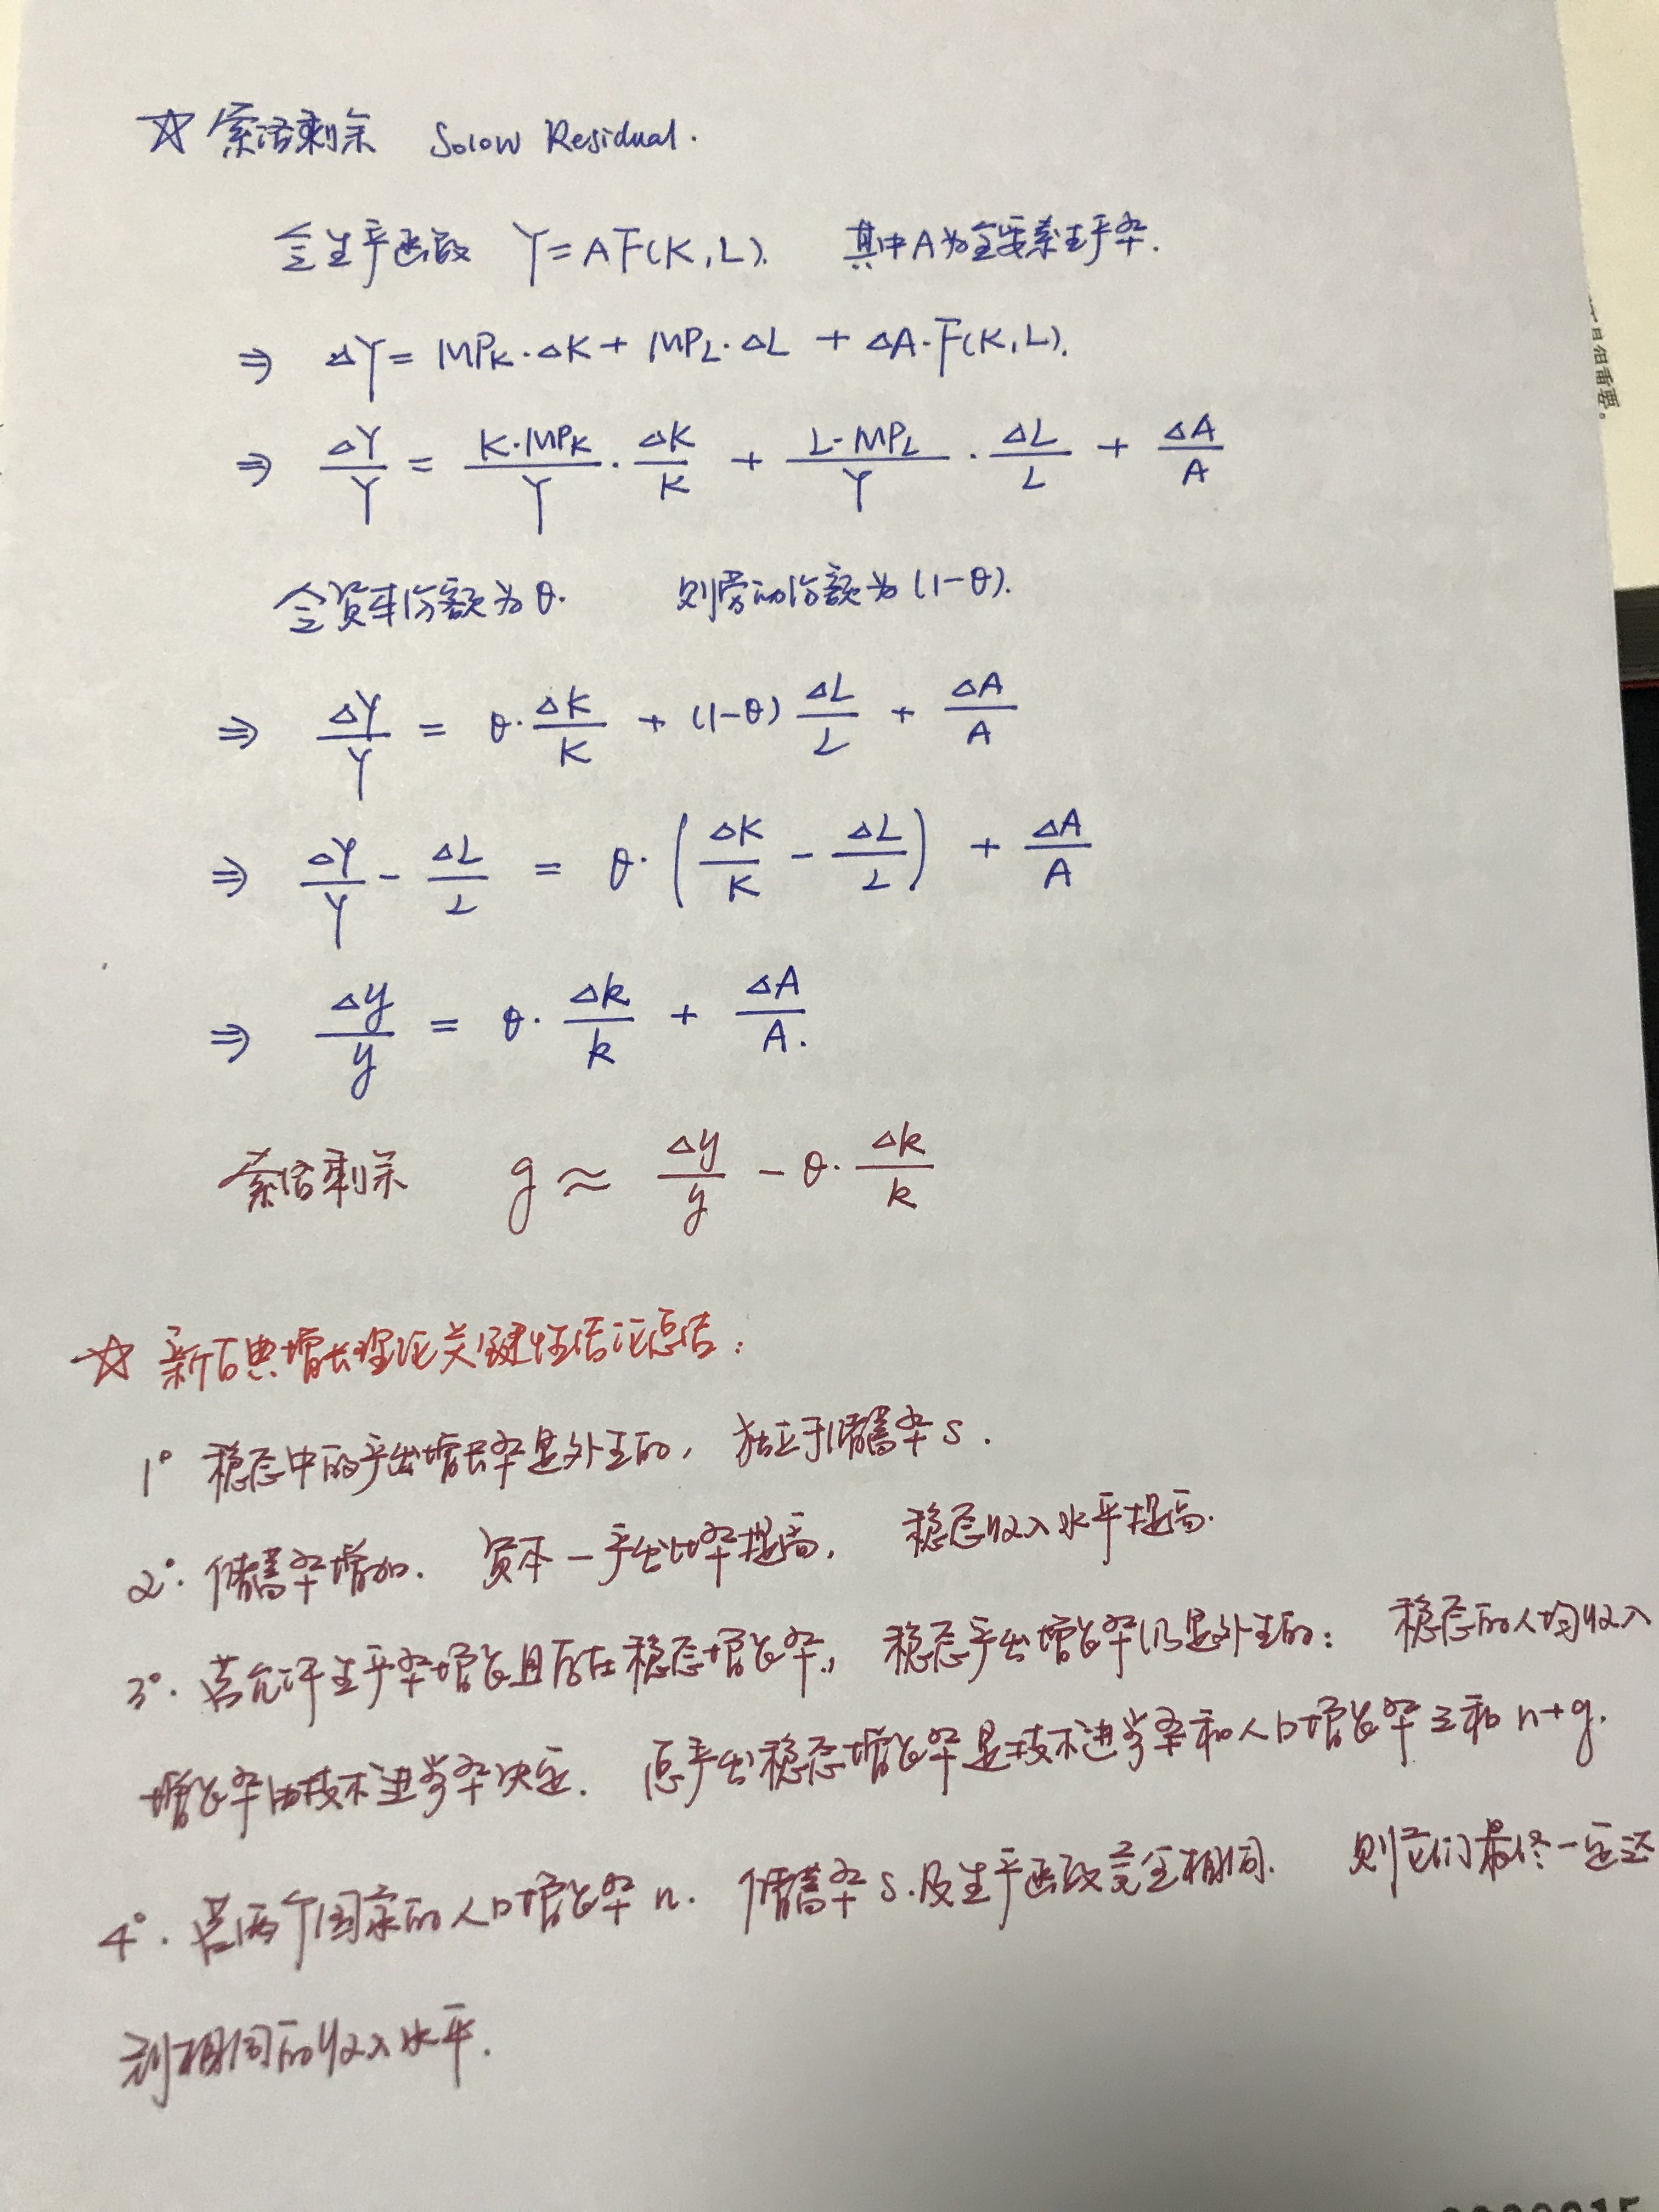 ☆ 索洛剩余 Solow Residual.
令生产函数 Y=AF(K,L). 其中A为全要素生产率.
⇒ ΔY = MPK·ΔK + MPL·ΔL + ΔA·F(K,L).
⇒ ΔY/Y = K·MPK/Y · ΔK/K + L·MPL/Y · ΔL/L + ΔA/A
令资本份额为θ. 则劳动份额为(1-θ).
⇒ ΔY/Y = θ·ΔK/K + (1-θ) ΔL/L + ΔA/A
⇒ ΔY/Y - ΔL/L = θ·(ΔK/K - ΔL/L) + ΔA/A
⇒ Δy/y = θ·Δk/k + ΔA/A.
索洛剩余 g ≈ Δy/y - θ·Δk/k
☆ 新古典增长理论关键性结论总结:
1° 稳态中的产出增长率是外生的, 独立于储蓄率s.
2°. 储蓄率增加. 资本-产出比率提高, 稳态收入水平提高.
3°. 若允许生产率增长且存在稳态增长率, 稳态产出增长率仍是外生的: 稳态的人均收入
增长率由技术进步率决定. 总产出稳态增长率是技术进步率和人口增长率之和 n+g.
4°. 若两个国家的人口增长率n. 储蓄率s.及生产函数完全相同. 则它们最终一定达
到相同的收入水平.
且很重要。